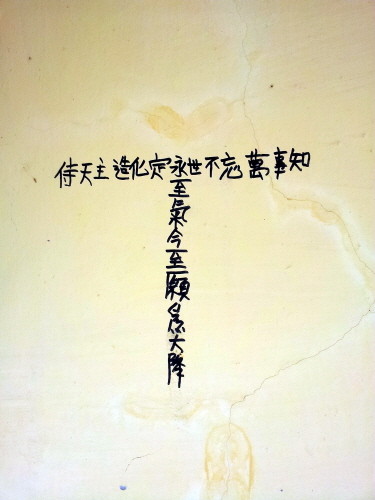 侍天主造化定永世不忘萬事知
至氣今至願爲大降